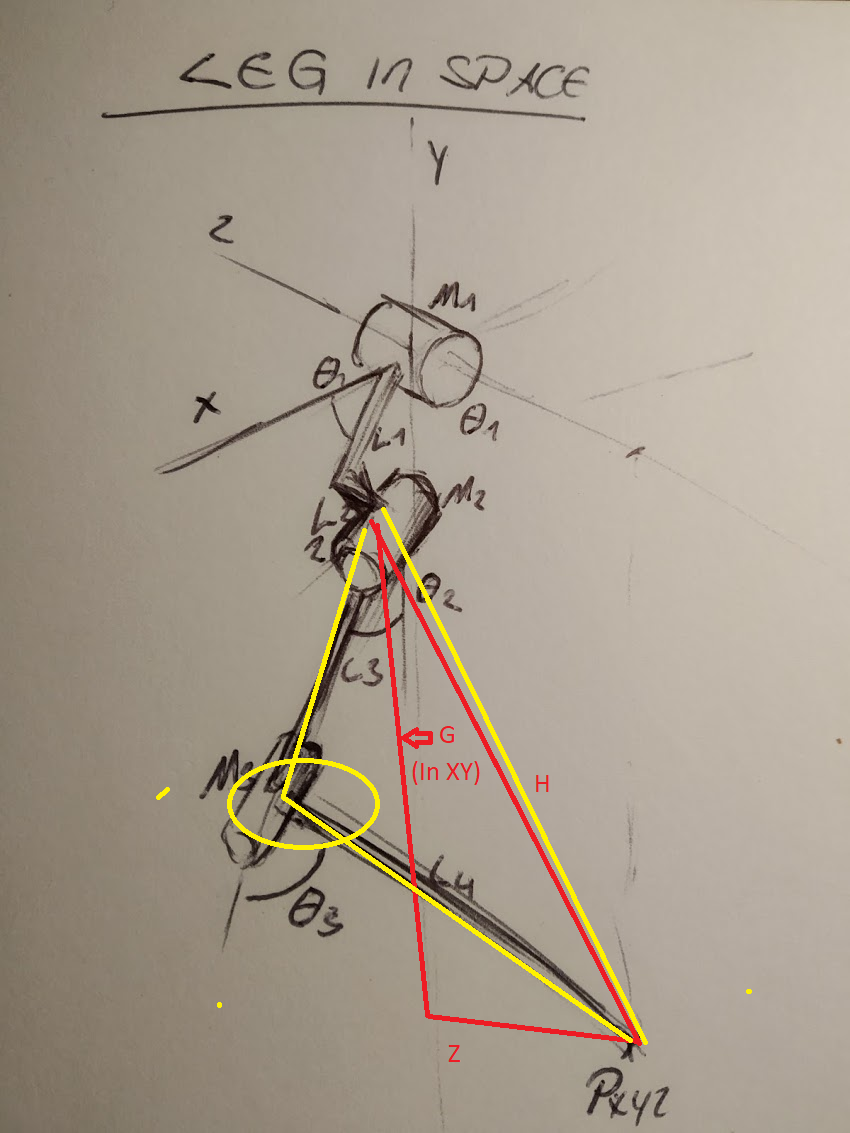 LEG in SPACE
Y
Z
M1
θ1
X
θ1
L1
M2
L2
θ2
L3
G
(In XY)
H
L4
θ3
Z
PXYZ